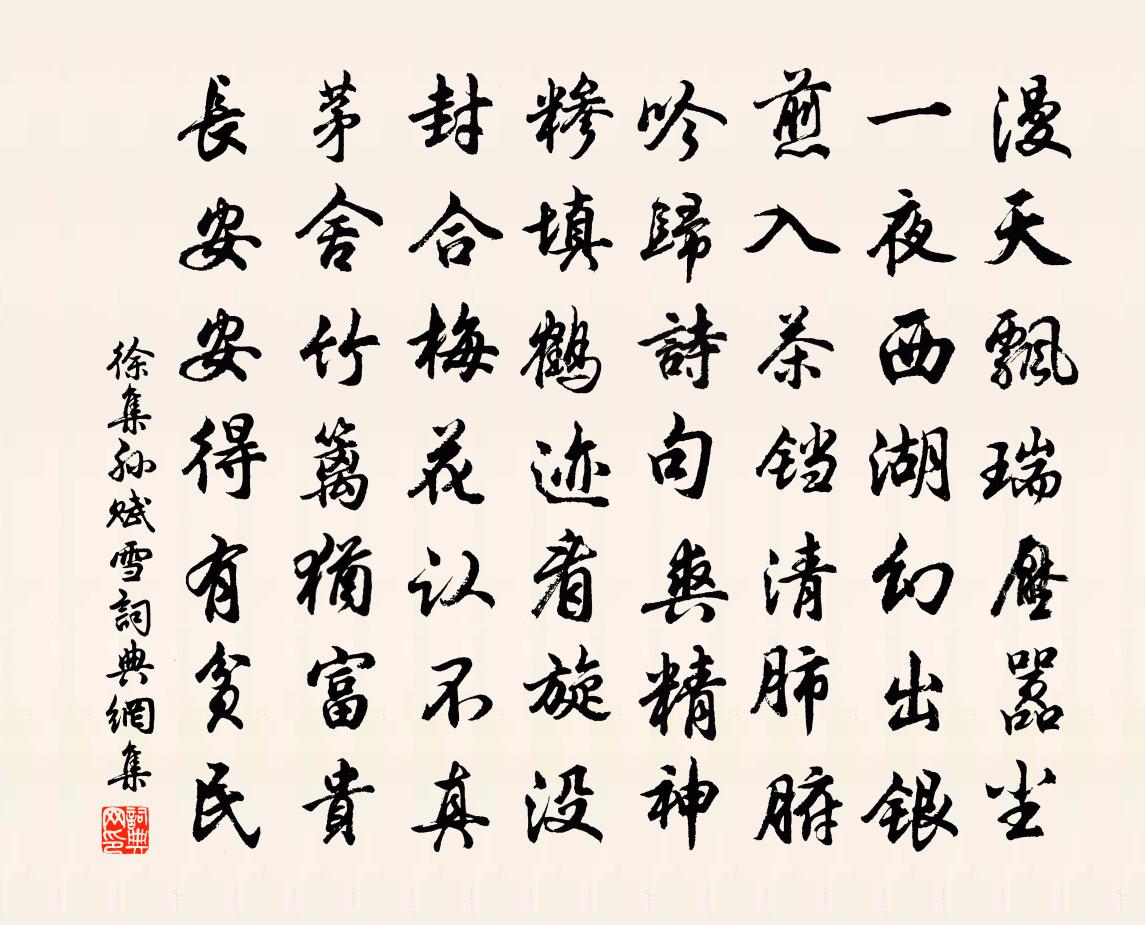 漫天飄瑞壓嚣尘
一夜西湖幻出银
煎入茶铛清肺腑
吟歸詩句爽精神
糁填鹤迹看旋没
封合梅花认不真
茅舍竹篱犹富貴
長安安得有贫民
徐集孙赋雪詞典網集
詞典網印